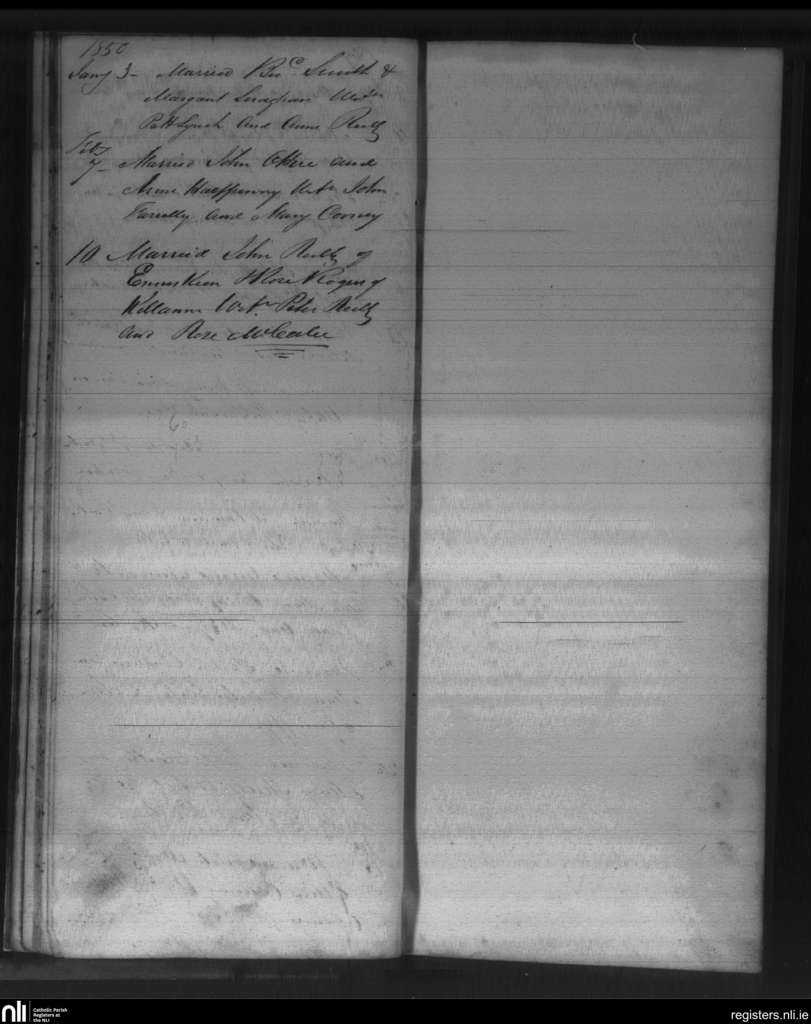 1850
Jany 3- Married Bn.c Smith &
Margaret Wits
Patt Lynch and Anne Reilly
Feby
7- Married John and
Anne Halfpenny Wits John
Farrelly and Mary Cooney
10 Married John Reilly of
Enniskeen & Rose Rogers of
Wits. Peter Reilly
and Rose McCabe
nli
Catholic Parish
Registers at
the NLI
registers.nli.ie